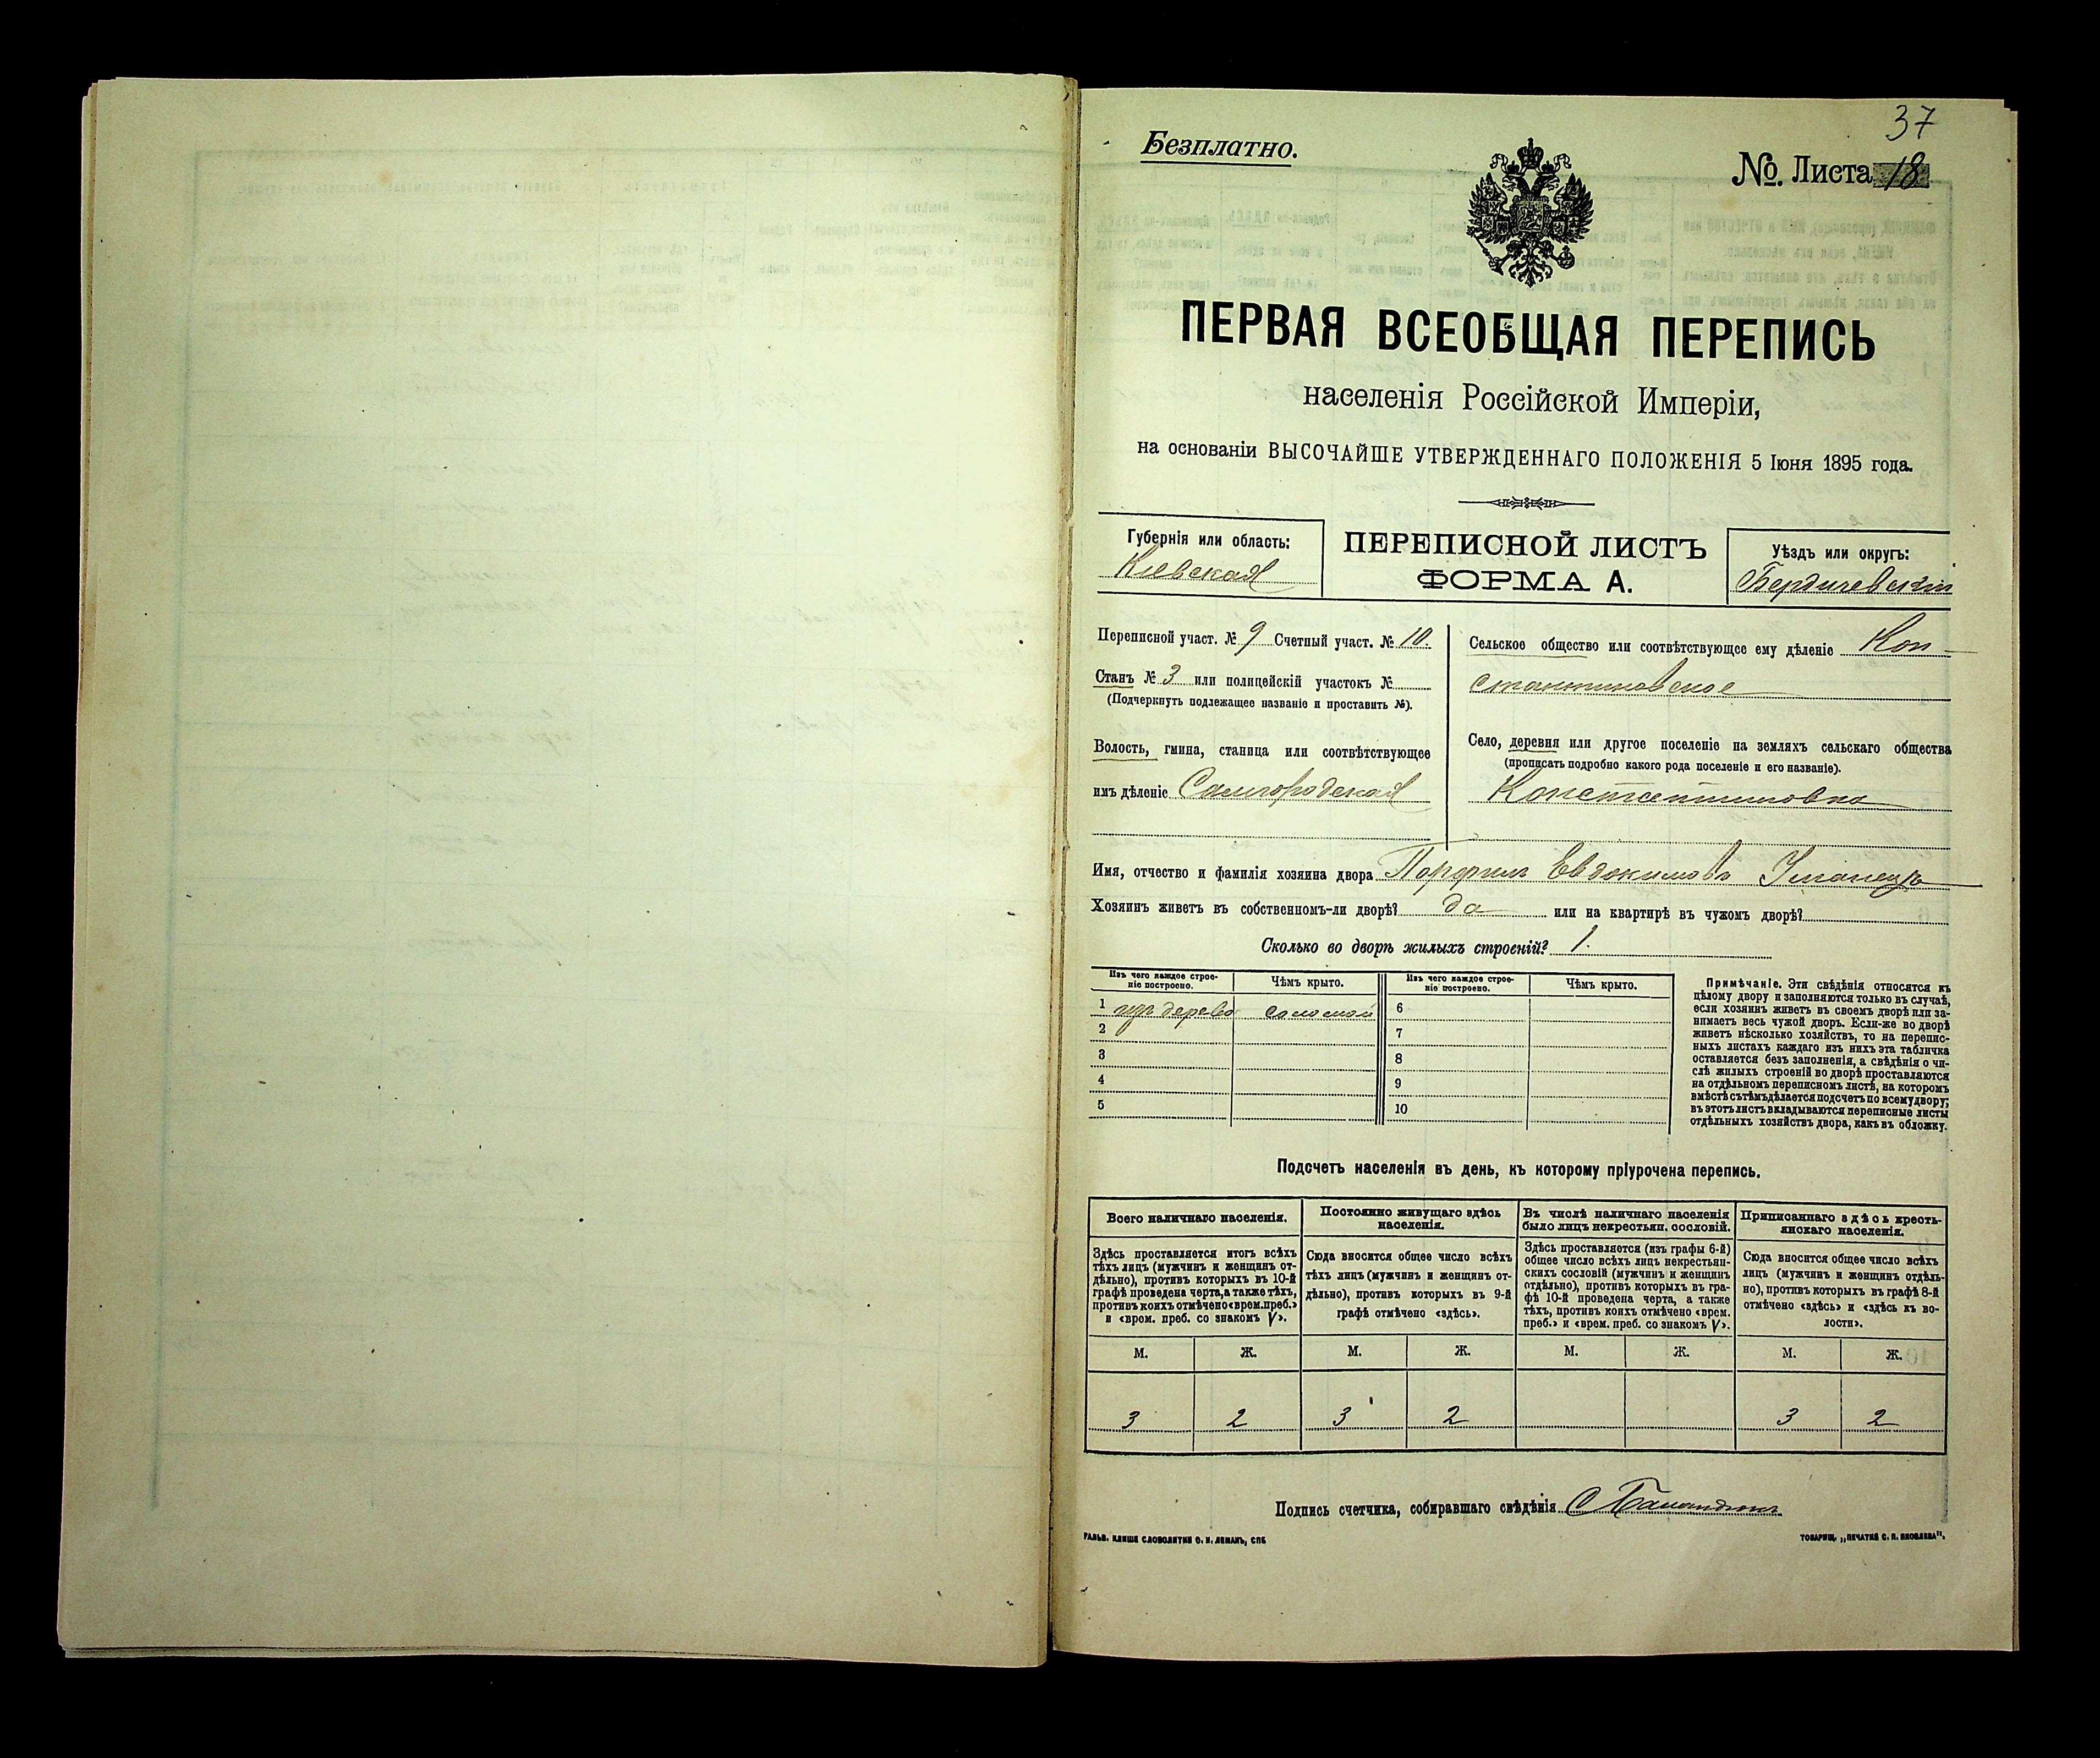 37
Безплатно.
№ Листа 18
ПЕРВАЯ ВСЕОБЩАЯ ПЕРЕПИСЬ
населенія Россійской Имперіи,
на основаніи ВЫСОЧАЙШЕ УТВЕРЖДЕННАГО ПОЛОЖЕНІЯ 5 Іюня 1895 года.
Губернія или область:
Кіевская
ПЕРЕПИСНОЙ ЛИСТЪ
ФОРМА А.
Уѣздъ или округъ:
Бердичевскій
Переписной участ. № 9 Счетный участ. № 10.
Станъ № 3 или полицейскій участокъ №
(Подчеркнуть подлежащее названіе и проставить №).
Волость, гмина, станица или соотвѣтствующее
имъ дѣленіе Самгородская
Сельское общество или соотвѣтствующее ему дѣленіе Кон-
стантиновское
Село, деревня или другое поселеніе на земляхъ сельскаго общества
(прописать подробно какого рода поселеніе и его названіе).
Константиновка
Имя, отчество и фамилія хозяина двора Порфилъ Евдокимовъ Уманецъ
Хозяинъ живетъ въ собственномъ-ли дворѣ? да или на квартирѣ въ чужомъ дворѣ?
Сколько во дворѣ жилыхъ строеній? 1.
Изъ чего каждое строе-
ніе построено.
Чѣмъ крыто.
Изъ чего каждое строе-
ніе построено.
Чѣмъ крыто.
1 изъ дерева соломой 6
2 7
3 8
4 9
5 10
Примѣчаніе. Эти свѣдѣнія относятся къ
цѣлому двору и заполняются только въ случаѣ,
если хозяинъ живетъ въ своемъ дворѣ или за-
нимаетъ весь чужой дворъ. Если-же во дворѣ
живетъ нѣсколько хозяйствъ, то на перепис-
ныхъ листахъ каждаго изъ нихъ эта табличка
оставляется безъ заполненія, а свѣдѣнія о чи-
слѣ жилыхъ строеній во дворѣ проставляются
на отдѣльномъ переписномъ листѣ, на которомъ
вмѣстѣ съ тѣмъ дѣлается подсчетъ по всему двору;
въ этотъ листъ вкладываются переписные листы
отдѣльныхъ хозяйствъ двора, какъ въ обложку.
Подсчетъ населенія въ день, къ которому пріурочена перепись.
Всего наличнаго населенія.
Здѣсь проставляется итогъ всѣхъ
тѣхъ лицъ (мужчинъ и женщинъ от-
дѣльно), противъ которыхъ въ 10-й
графѣ проведена черта, а также тѣхъ,
противъ коихъ отмѣчено «врем. преб.»
и «врем. преб. со знакомъ V».
Постоянно живущаго здѣсь
населенія.
Сюда вносится общее число всѣхъ
тѣхъ лицъ (мужчинъ и женщинъ от-
дѣльно), противъ которыхъ въ 9-й
графѣ отмѣчено «здѣсь».
Въ числѣ наличнаго населенія
было лицъ некрестьян. сословій.
Здѣсь проставляется (изъ графы 6-й)
общее число всѣхъ лицъ некрестьян-
скихъ сословій (мужчинъ и женщинъ
отдѣльно), противъ которыхъ въ гра-
фѣ 10-й проведена черта, а также
тѣхъ, противъ коихъ отмѣчено «врем.
преб.» и «врем. преб. со знакомъ V».
Приписаннаго здѣсь кресть-
янскаго населенія.
Сюда вносится общее число всѣхъ
лицъ (мужчинъ и женщинъ отдѣль-
но), противъ которыхъ въ графѣ 8-й
отмѣчено «здѣсь» и «здѣсь къ во-
лости».
М. Ж. М. Ж. М. Ж. М. Ж.
3 2 3 2 3 2
Подпись счетчика, собиравшаго свѣдѣнія
ГАЛЬВ. КЛИШЕ СЛОВОЛИТНИ О. И. ЛЕМАНЪ, СПБ
ТОВАРИЩ. „ПЕЧАТНЯ С. П. ЯКОВЛЕВА".